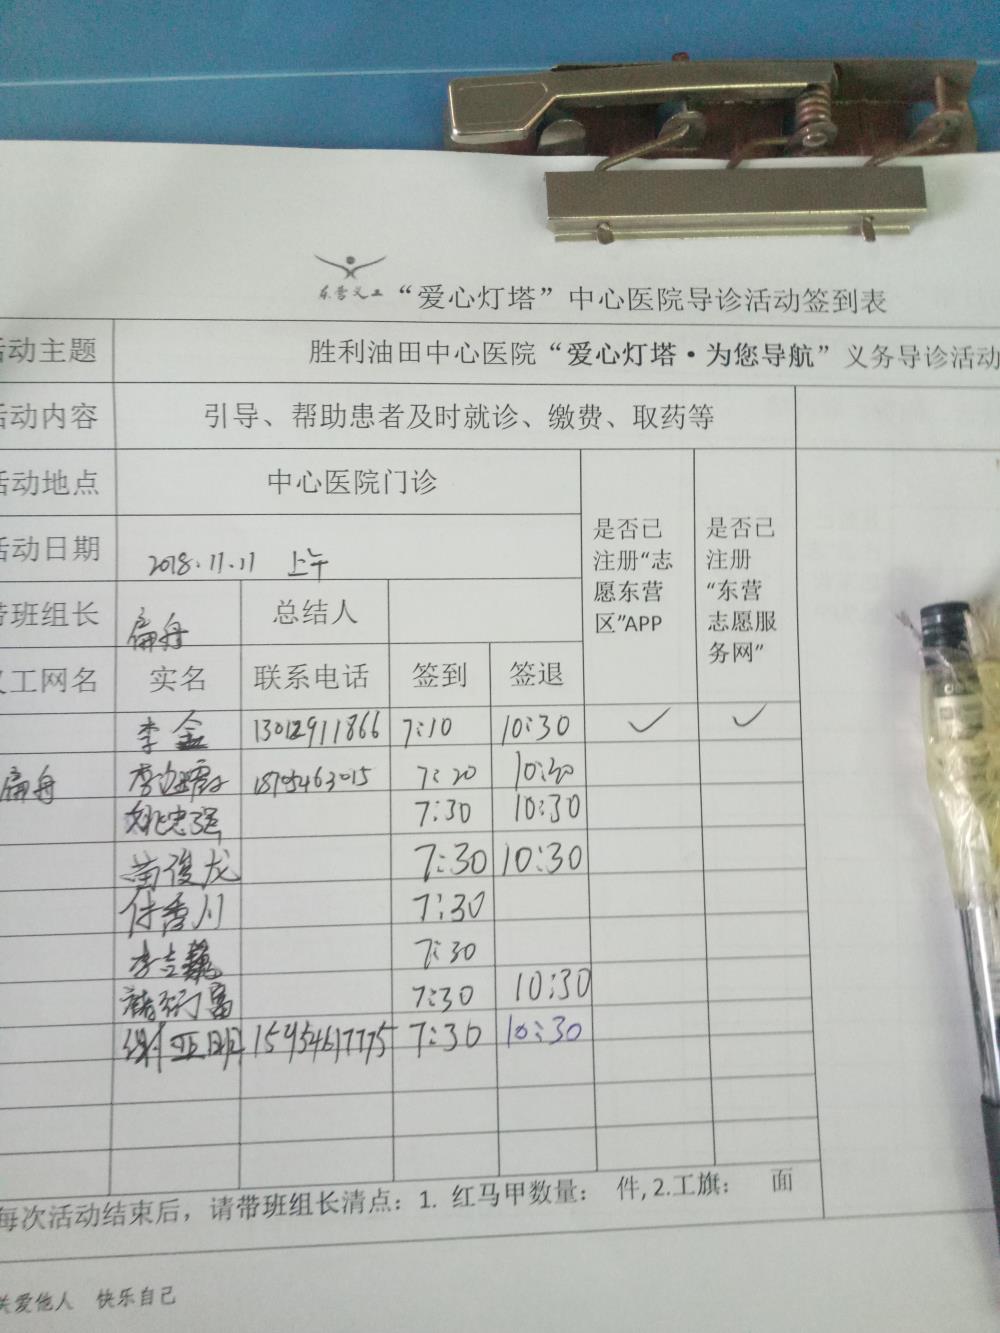 东营义工 “爱心灯塔”中心医院导诊活动签到表
活动主题 胜利油田中心医院“爱心灯塔·为您导航”义务导诊活动
活动内容 引导、帮助患者及时就诊、缴费、取药等
活动地点 中心医院门诊
是否已注册“志愿东营区”APP
是否已注册“东营志愿服务网”
活动日期 2018.11.11 上午
带班组长 扁舟 总结人
义工网名 实名 联系电话 签到 签退
李金 13012911866 7:10 10:30 ✓ ✓
扁舟 7:20 10:30
姚忠强 7:30 10:30
苗俊龙 7:30 10:30
付香川 7:30
李吉巍 7:30
7:30 10:30
谢亚明 15954617775 7:30 10:30
每次活动结束后，请带班组长清点：1. 红马甲数量： 件, 2.工旗： 面
关爱他人 快乐自己